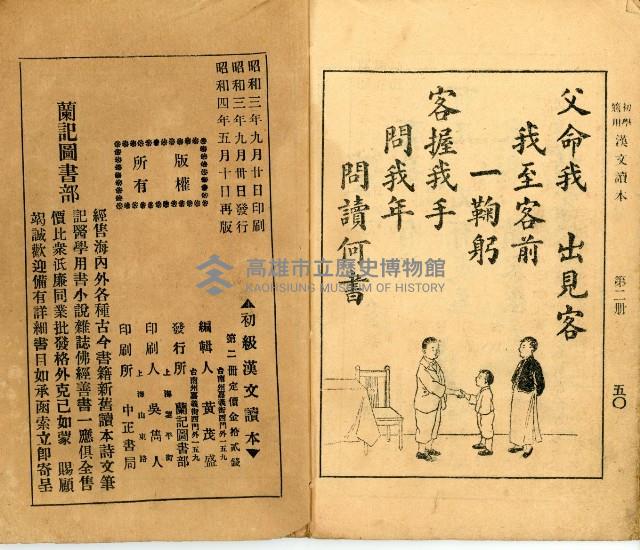 初學
適用
漢文讀本
第二册
五〇
父命我 出見客
我至客前
一鞠躬
客握我手
問我年
問讀何書
昭和三年九月廿日印刷
昭和三年九月卅日發行
昭和四年五月十日再版
版權
所有
初級漢文讀本
第二册定價金拾貳錢
台南州嘉義街西門外一五九
編輯人 黃茂盛
台南州嘉義街西門外一五九
發行所 蘭記圖書部
上海望平街
印刷人 吳雋人
上海山東路
印刷所 中正書局
蘭記圖書部
經售海內外各種古今書籍新舊讀本詩文筆
記醫學用書小說雜誌佛經善書一應俱全售
價比衆低廉同業批發格外克己如蒙 賜顧
竭誠歡迎備有詳細書目如承函索立即寄呈
高雄市立歷史博物館
KAOHSIUNG MUSEUM OF HISTORY